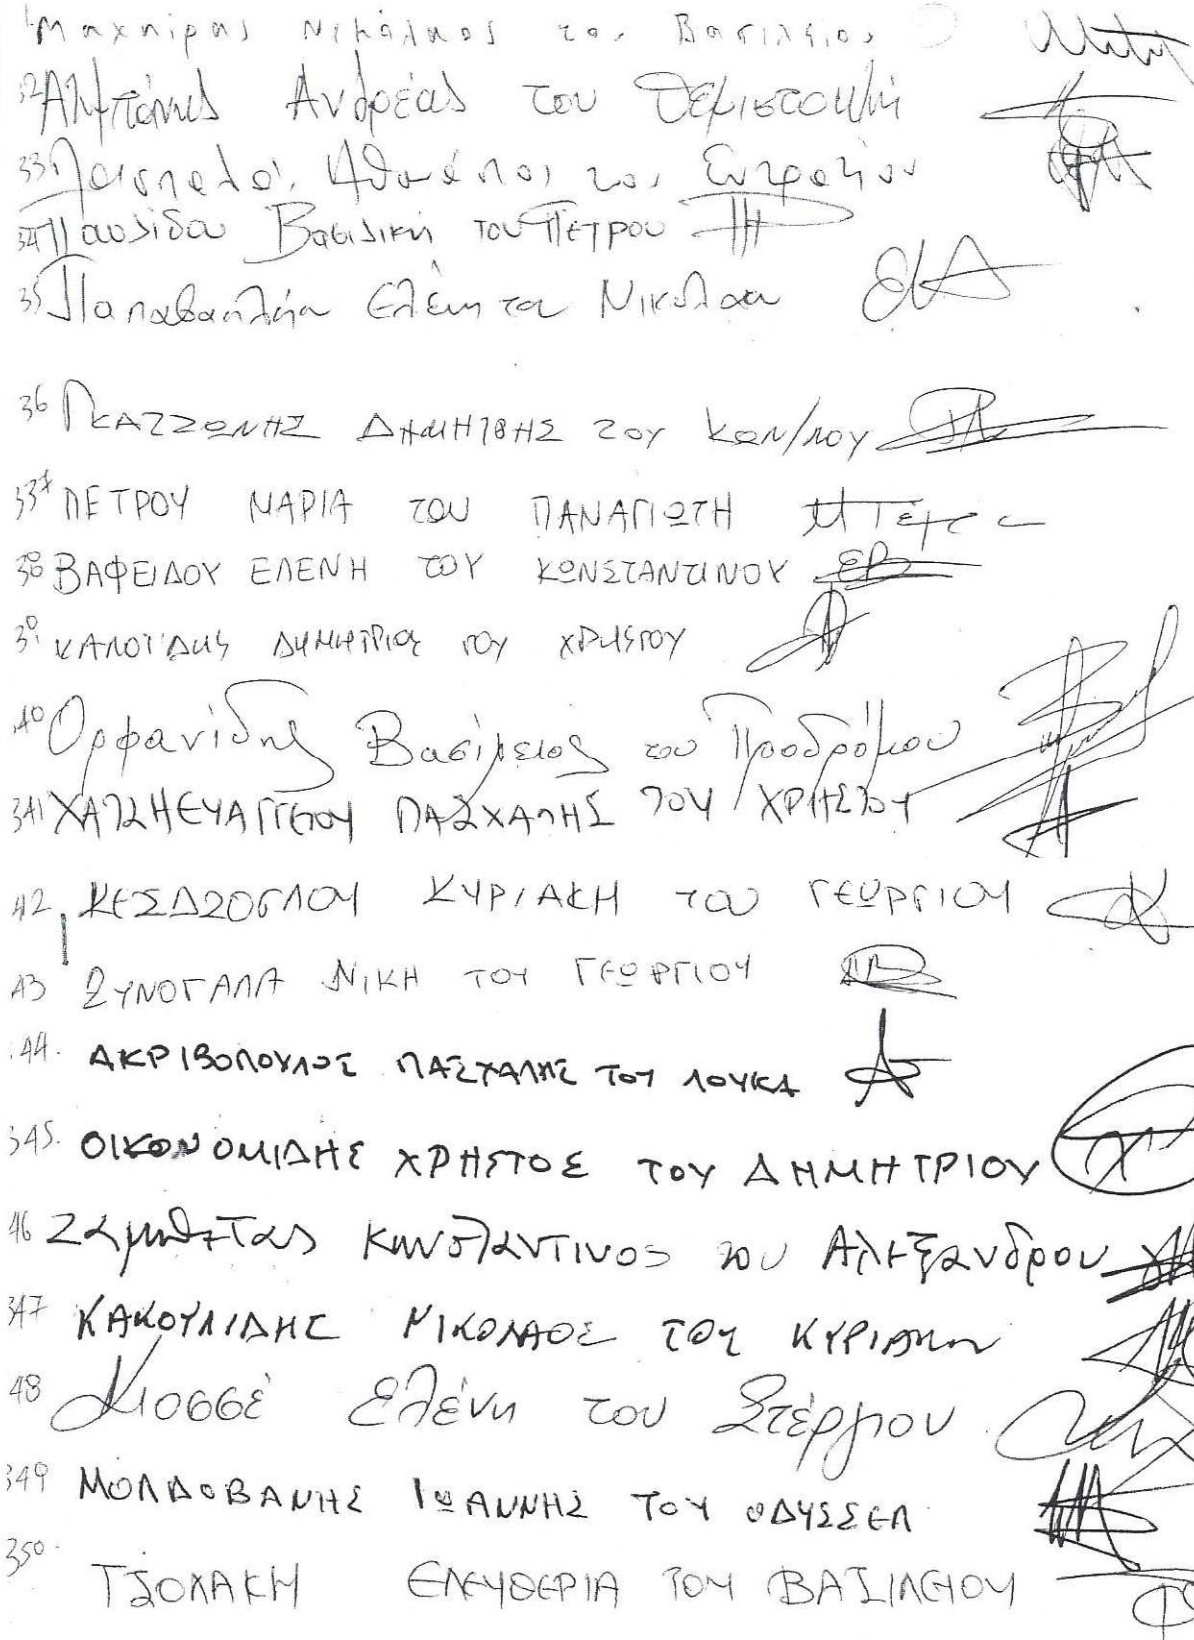 Μαχαίρας Νικόλαος του Βασιλείου
32 Αλμπάνης Ανδρέας του Θεμιστοκλή
33 Αθανάσιος του Ευστρατίου
34 Παυλίδου Βασιλική του Πέτρου
35 Παπαβασιλείου Ελένη του Νικολάου
36 ΓΚΑΤΖΩΝΗΣ ΔΗΜΗΤΡΗΣ ΤΟΥ ΚΩΝ/ΝΟΥ
337 ΠΕΤΡΟΥ ΜΑΡΙΑ ΤΟΥ ΠΑΝΑΓΙΩΤΗ
38 ΒΑΦΕΙΔΟΥ ΕΛΕΝΗ ΤΟΥ ΚΩΝΣΤΑΝΤΙΝΟΥ
39 ΚΑΛΟΪΔΗΣ ΔΗΜΗΤΡΙΟΣ ΤΟΥ ΧΡΗΣΤΟΥ
40 Ορφανίδης Βασίλειος του Προδρόμου
341 ΧΑΤΖΗΕΥΑΓΓΕΛΟΥ ΠΑΣΧΑΛΗΣ ΤΟΥ ΧΡΗΣΤΟΥ
42 ΚΕΣΔΖΟΓΛΟΥ ΚΥΡΙΑΚΗ ΤΟΥ ΓΕΩΡΓΙΟΥ
43 ΞΥΝΟΓΑΛΑ ΝΙΚΗ ΤΟΥ ΓΕΩΡΓΙΟΥ
44. ΑΚΡΙΒΟΠΟΥΛΟΣ ΠΑΣΧΑΛΗΣ ΤΟΥ ΛΟΥΚΑ
345. ΟΙΚΟΝΟΜΙΔΗΣ ΧΡΗΣΤΟΣ ΤΟΥ ΔΗΜΗΤΡΙΟΥ
46 Κωνσταντινος του Αλεξανδρου
347 ΚΑΚΟΥΛΙΔΗΣ ΝΙΚΟΛΑΟΣ ΤΟΥ ΚΥΡΙΑΚΟΥ
48 Κιοσσέ Ελένη του Στέργιου
349 ΜΟΛΔΟΒΑΝΗΣ ΙΩΑΝΝΗΣ ΤΟΥ ΟΔΥΣΣΕΑ
350 ΤΣΟΛΑΚΗ ΕΛΕΥΘΕΡΙΑ ΤΟΥ ΒΑΣΙΛΕΙΟΥ